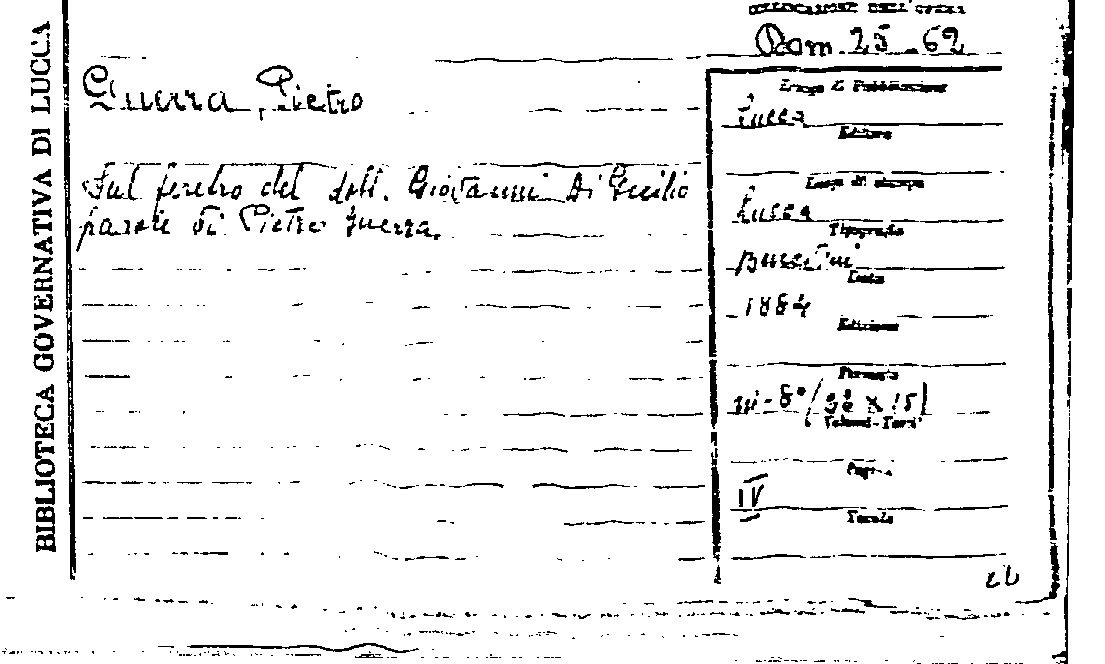 BIBLIOTECA GOVERNATIVA DI LUCCA
COLLOCAZIONE DELL'OPERA
Dom. 25. 62
Guerra, Pietro
Sul feretro del dott. Giovanni Di Giulio
parole di Pietro Guerra.
Luogo di Pubblicazione
Lucca
Editore
Luogo di stampa
Lucca
Tipografo
Data
1884
Edizione
Formato
in-8°
Volumi-Tomi
Pagine
IV
Tavole